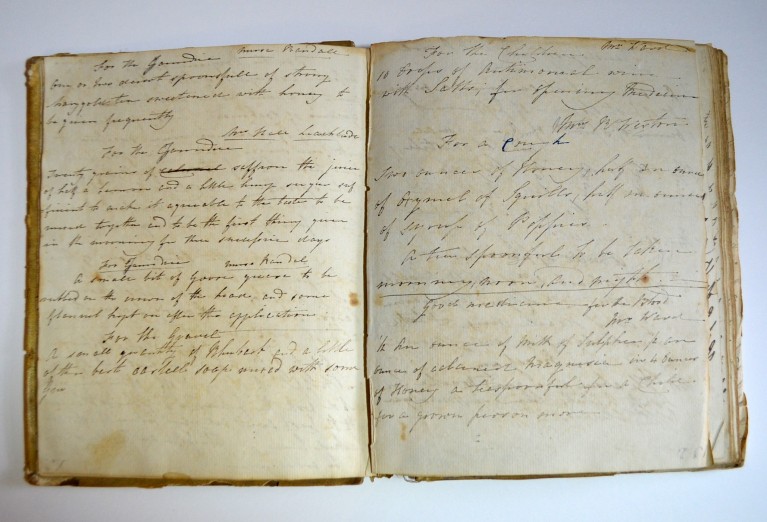 For the Gaundice nurse Randall
One or two desert spoonsfull of strong
sweetened with honey to
be given frequently
Mrs
For the Gaundice
Twenty grains of saffron the juice
of half a Lemon and a little lump sugar suf
ficient to make it agreeable to the taste to be
mixed together and to be the first thing given
in the morning for three sucessive days
For Gaundice nurse Randel
A small bit of Goose grease to be
rubbed on the of the head, and some
flannel kept on after the application
For the Gravel
A small quantity of Rhubarb and a little
of the best castell soap mixed with some
For the Children Mrs Ward
10 Drops of Antimonial wine
with Salts, for opening Medecine
Mrs Weston
For a Cough
Two ounces of Honey, half an ounce
of Oxymel of Squills, half an ounce
of syrup of Poppies
A tea spoonful to be taken
morning, noon, and night
Good medicine for the Blood
Mrs Ward
An ounce of Milk of Sulpher, an
ounce of Magnesia in 4 ounces
of Honey a teaspoonful for a Child
for a grown person more